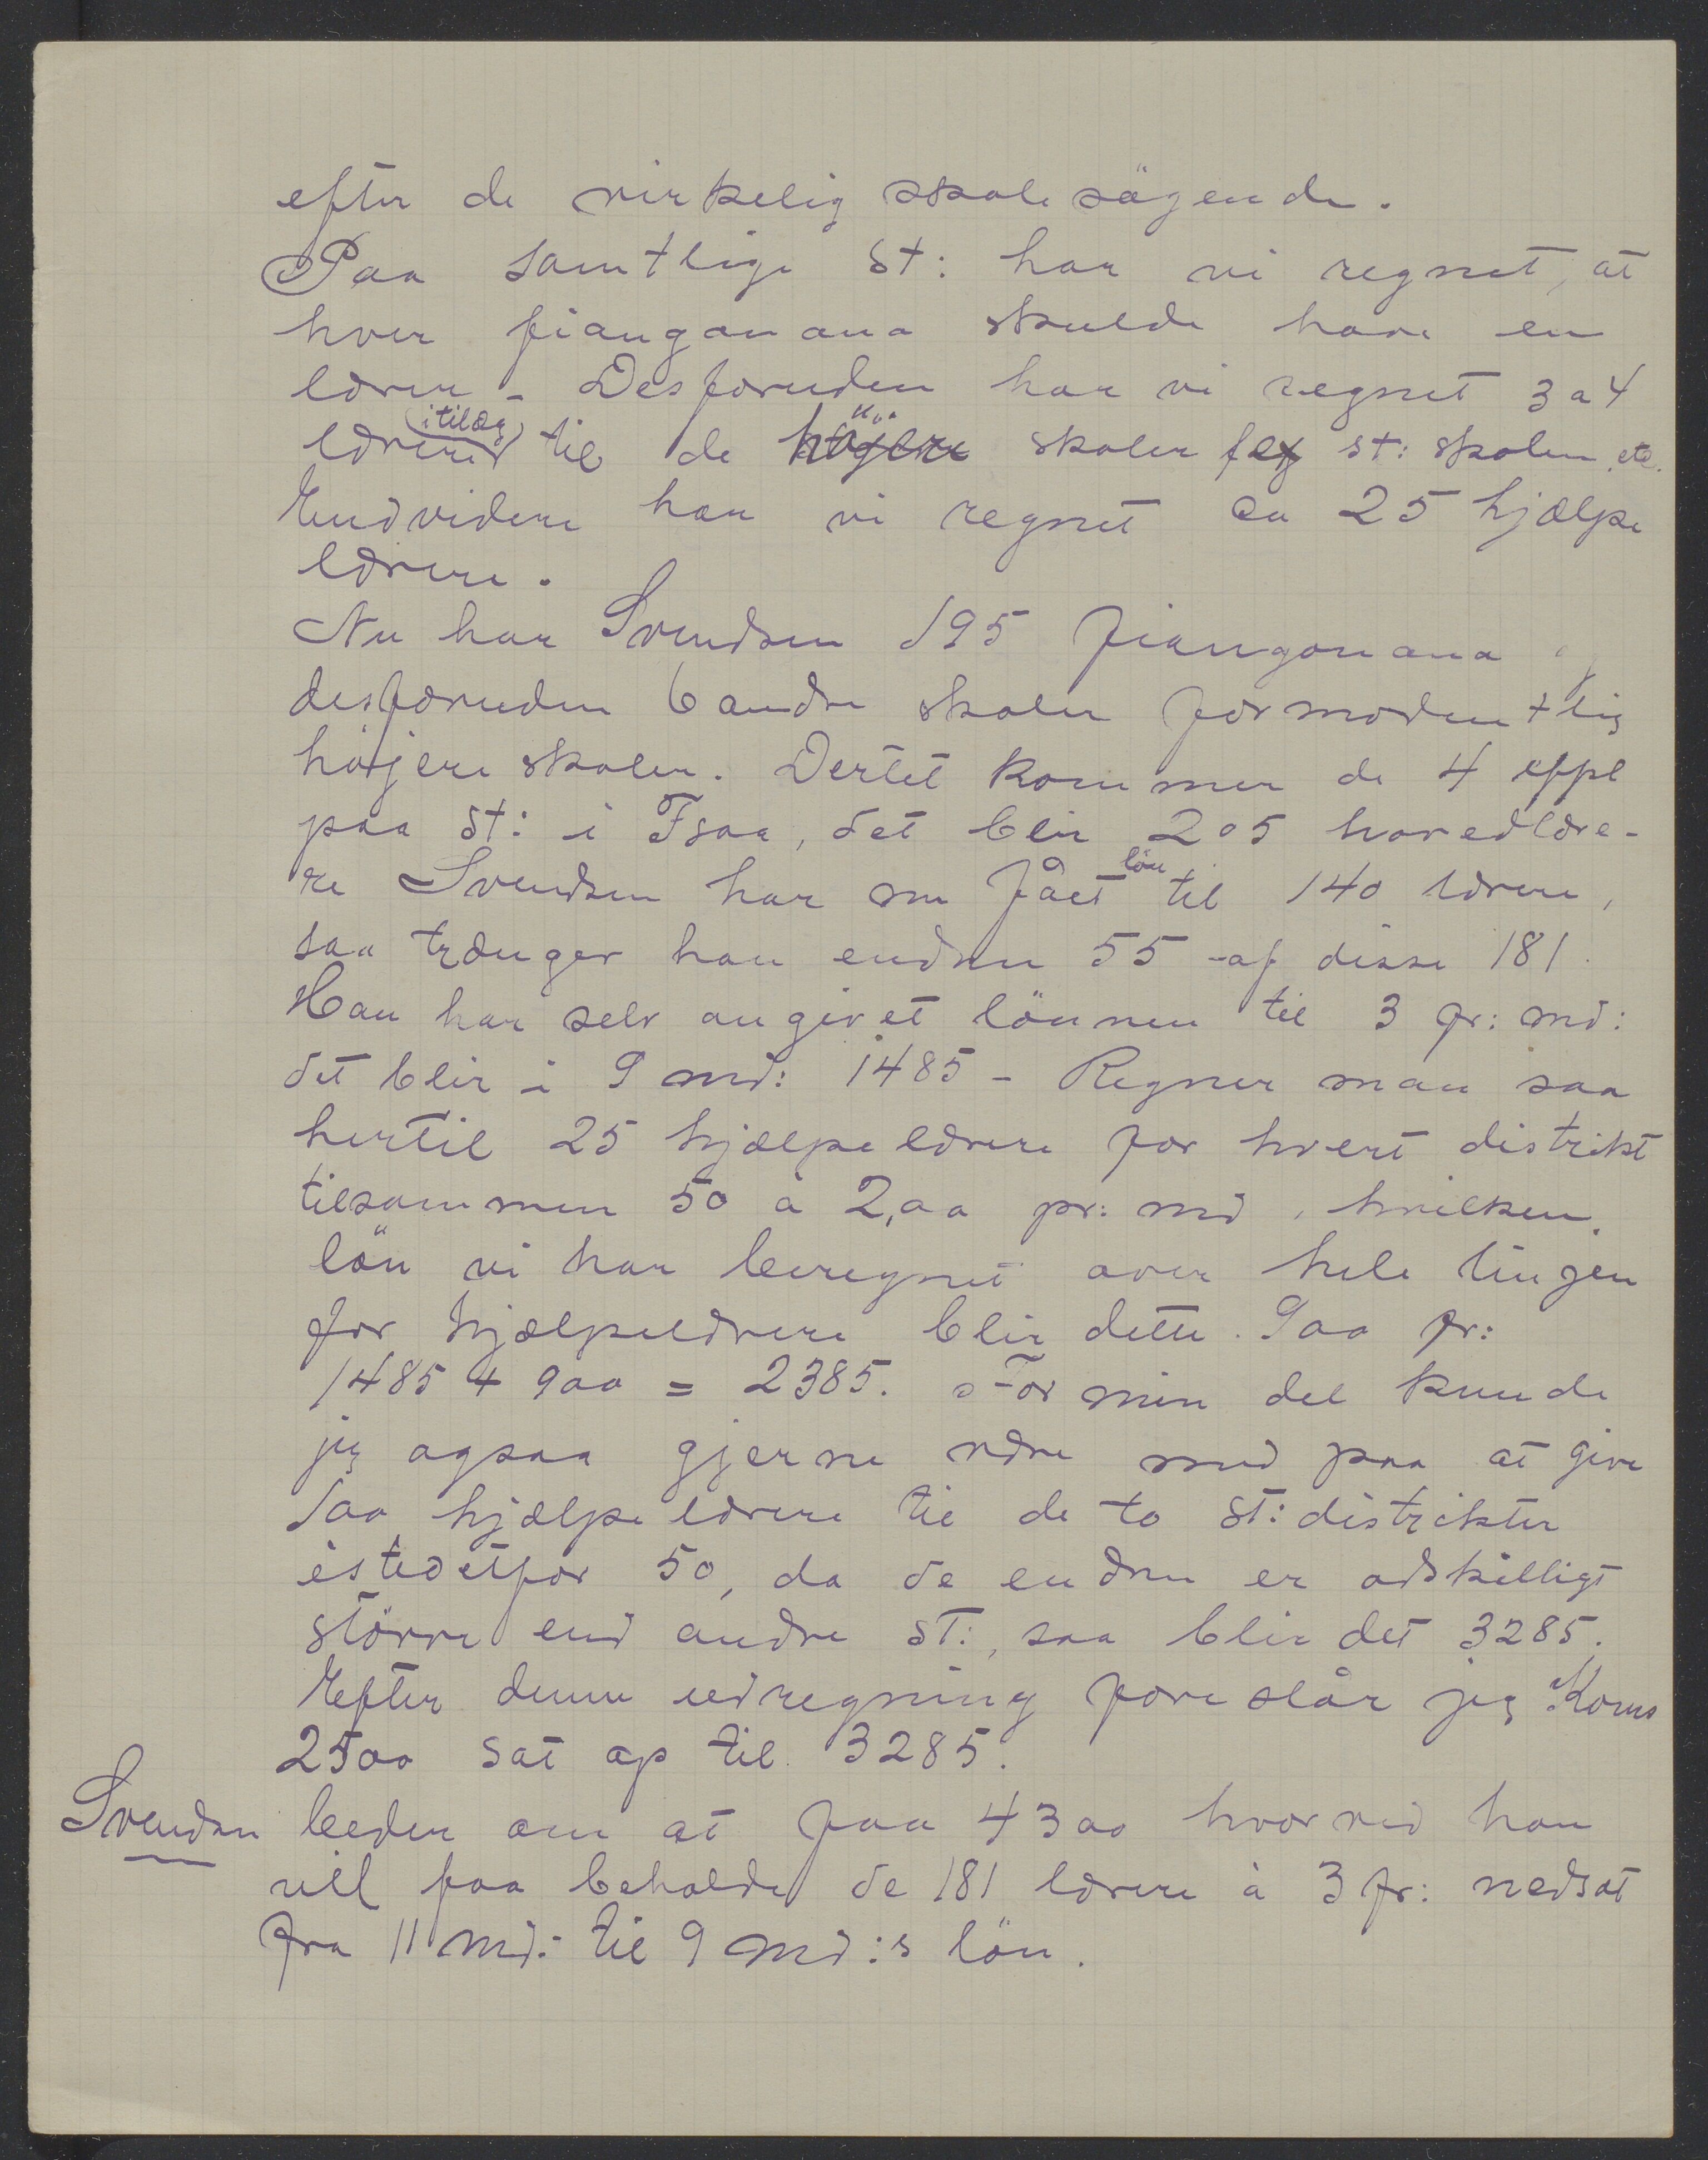 efter de virkelig skole sögende.
Paa samtlige St: har vi regnet, at
hver fiangonana skulde have en
lærer - Desforuden har vi regnet 3 a 4
lærere i tilæg til de höjere skoler feks st: skolen etc.
Endvidere har vi regnet ca 25 hjælpe
lærere.
Nu har Svendsen 195 fiangonana og
desforuden 6 andre skoler formodentlig
höjere skoler. Dertil kommer de 4 eppl
paa St: i Tsaa, det blir 205 hovedlære-
re Svendsen har nu fået lön til 140 lærere,
saa trænger han endnu 55 af disse 181.
Han har selv angivet lönnen til 3 fr: md:
det blir i 9 md: 1485 - Regner man saa
hertil 25 hjælpelærere for hvert distrikt
tilsammen 50 à 2,00 pr: md, hvilken
lön vi har beregnet over hele linjen
for hjælpelærere blir dette 900 fr:
1485 + 900 = 2385. For min del kunde
jeg ogsaa gjerne være med paa at give
100 hjælpelærere til de to St: distrikter
istedetfor 50, da de endnu er adskilligt
större end andre St:, saa blir det 3285.
Efter denne udregning foreslår jeg Koms
2500 sat op til 3285.
Svendsen beder om at faa 4300 hvorved han
vil faa beholde de 181 lærere à 3 fr: nedsat
fra 11 md: til 9 md:s lön.